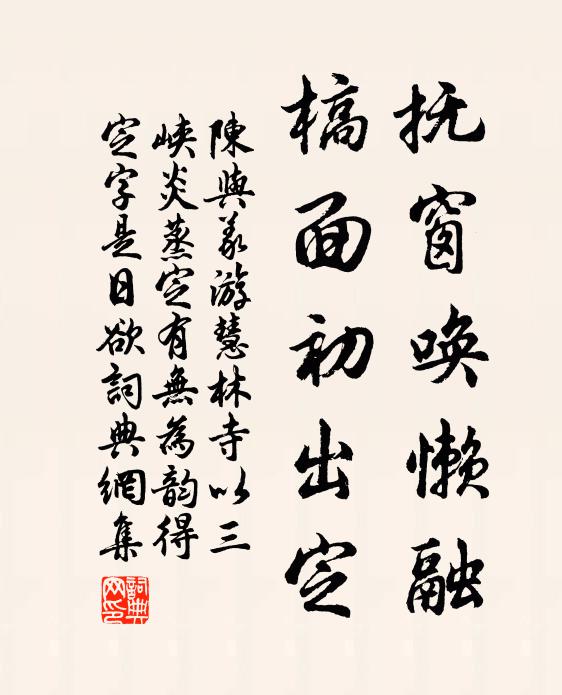 抚窗唤懒融
槁面初出定
陳與義游慧林寺以三
峡炎蒸定有無為韵得
定字是日欲詞典網集
詞典网印